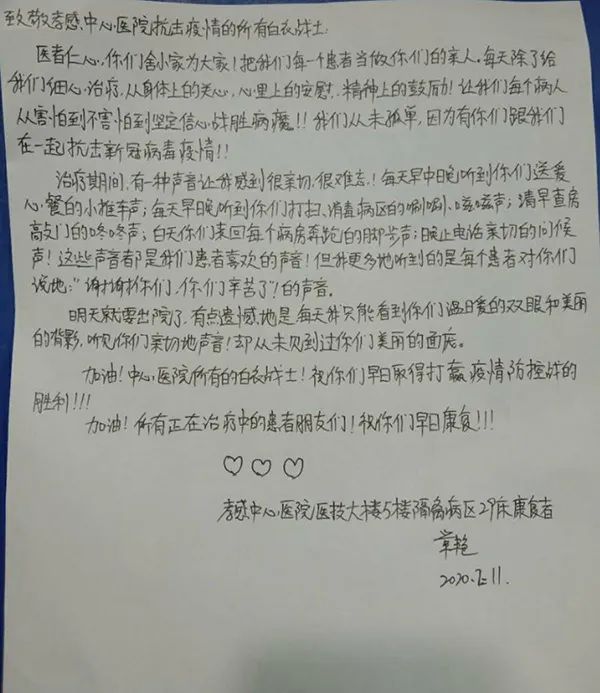 致敬孝感中心医院抗击疫情的所有白衣战士
医者仁心，你们舍小家为大家！把我们每一个患者当做你们的亲人。每天除了给
我们细心治疗，从身体上的关心，心里上的安慰，精神上的鼓励！让我们每个病人
从害怕到不害怕到坚定信心战胜病魔！！我们从未孤单，因为有你们跟我们
在一起抗击新冠病毒疫情！！
治疗期间，有一种声音让我感到很亲切，很难忘！每天早中晚听到你们送爱
心餐的小推车声；每天早晚听到你们打扫、消毒病区的唰唰、嗞嗞声；清早查房
敲门的咚咚声；白天你们来回每个病房奔跑的脚步声；晚上电话亲切的问候
声！这些声音都是我们患者喜欢的声音！但我更多地听到的是每个患者对你们
说地：“谢谢你们，你们辛苦了”！的声音。
明天就要出院了，有点遗憾地是每天我只能看到你们温暖的双眼和美丽
的背影，听见你们亲切地声音！却从未见到过你们美丽的面庞。
加油！中心医院所有的白衣战士！祝你们早日取得打赢疫情防控战的
胜利！！！
加油！所有正在治疗中的患者朋友们！祝你们早日康复！！！
孝感中心医院医技大楼5楼隔离病区29床康复者
章艳
2020.2.11.